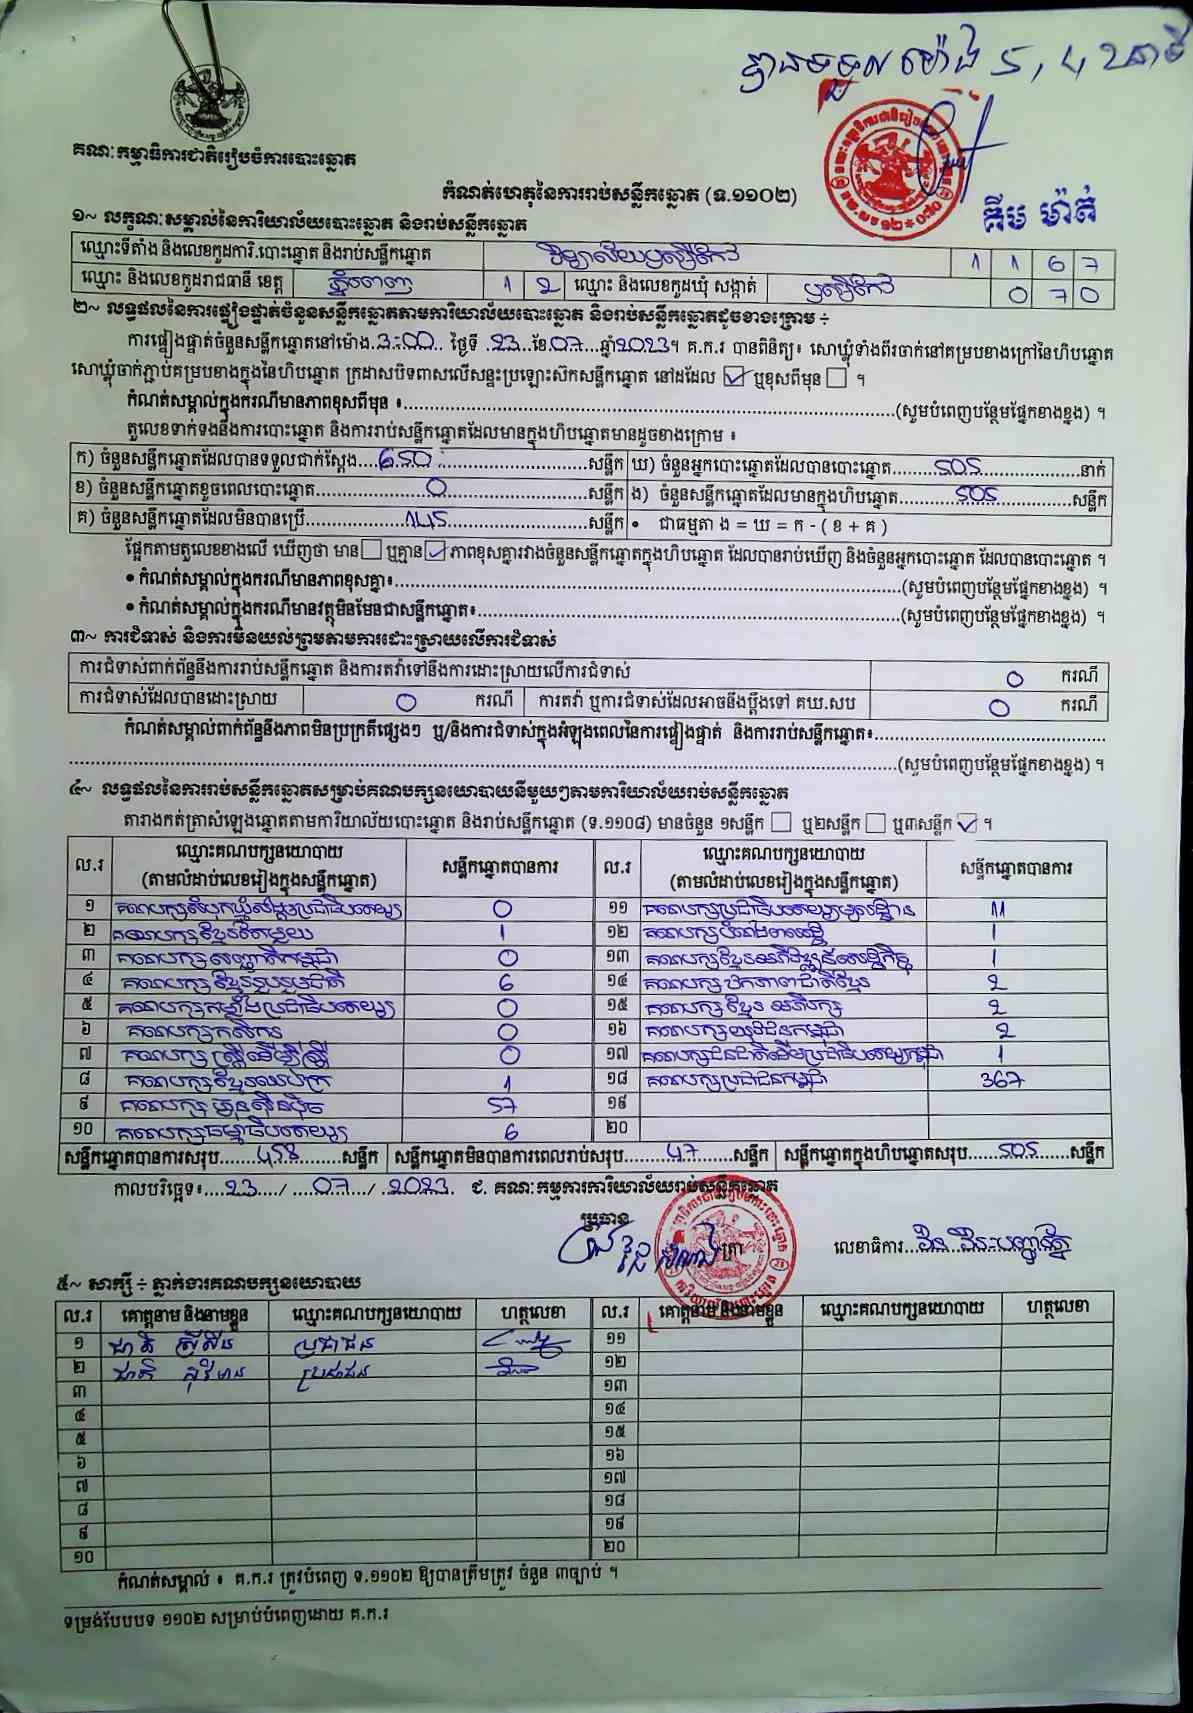 បានទទួល ម៉ោង 5 , 42នាទី
គណៈកម្មាធិការជាតិរៀបចំការបោះឆ្នោត
កំណត់ហេតុនៃការរាប់សន្លឹកឆ្នោត (ទ.១១០២)
គីម ម៉ាត់
១~ លក្ខណៈសម្គាល់នៃការិយាល័យបោះឆ្នោត និងរាប់សន្លឹកឆ្នោត
ឈ្មោះទីតាំង និងលេខកូដការិ.បោះឆ្នោត និងរាប់សន្លឹកឆ្នោត វិទ្យាល័យឫស្សីកែវ 1 1 6 7
ឈ្មោះ និងលេខកូដរាជធានី ខេត្ត ភ្នំពេញ 1 2 ឈ្មោះ និងលេខកូដឃុំ សង្កាត់ ឫស្សីកែវ 0 7 0
២~ លទ្ធផលនៃការផ្ទៀងផ្ទាត់ចំនួនសន្លឹកឆ្នោតតាមការិយាល័យបោះឆ្នោត និងរាប់សន្លឹកឆ្នោតដូចខាងក្រោម ÷
ការផ្ទៀងផ្ទាត់ចំនួនសន្លឹកឆ្នោតនៅម៉ោង.3:00.. ថ្ងៃទី .23..ខែ.07....ឆ្នាំ2023។ គ.ក.រ បានពិនិត្យ៖ សោឃ្លុំទាំងពីរចាក់នៅគម្របខាងក្រៅនៃហិបឆ្នោត
សោឃ្លុំចាក់ភ្ជាប់គម្របខាងក្នុងនៃហិបឆ្នោត ក្រដាសបិទពាសលើសន្ទះប្រឡោះស៊កសន្លឹកឆ្នោត នៅដដែល ☑ ឬខុសពីមុន ☐ ។
កំណត់សម្គាល់ក្នុងករណីមានភាពខុសពីមុន ៖........(សូមបំពេញបន្ថែមផ្នែកខាងខ្នង) ។
តួលេខទាក់ទងនឹងការបោះឆ្នោត និងការរាប់សន្លឹកឆ្នោតដែលមានក្នុងហិបឆ្នោតមានដូចខាងក្រោម ៖
ក) ចំនួនសន្លឹកឆ្នោតដែលបានទទួលជាក់ស្តែង....650........សន្លឹក ឃ) ចំនួនអ្នកបោះឆ្នោតដែលបានបោះឆ្នោត........505........នាក់
ខ) ចំនួនសន្លឹកឆ្នោតខូចពេលបោះឆ្នោត........0........សន្លឹក ង) ចំនួនសន្លឹកឆ្នោតដែលមានក្នុងហិបឆ្នោត........505........សន្លឹក
គ) ចំនួនសន្លឹកឆ្នោតដែលមិនបានប្រើ........145........សន្លឹក • ជាធម្មតា ង = ឃ = ក - ( ខ + គ )
ផ្អែកតាមតួលេខខាងលើ ឃើញថា មាន ☐ ឬគ្មាន ☑ ភាពខុសគ្នារវាងចំនួនសន្លឹកឆ្នោតក្នុងហិបឆ្នោត ដែលបានរាប់ឃើញ និងចំនួនអ្នកបោះឆ្នោត ដែលបានបោះឆ្នោត ។
• កំណត់សម្គាល់ក្នុងករណីមានភាពខុសគ្នា៖........(សូមបំពេញបន្ថែមផ្នែកខាងខ្នង) ។
• កំណត់សម្គាល់ក្នុងករណីមានវត្ថុមិនមែនជាសន្លឹកឆ្នោត៖........(សូមបំពេញបន្ថែមផ្នែកខាងខ្នង) ។
៣~ ការជំទាស់ និងការមិនយល់ព្រមតាមការដោះស្រាយលើការជំទាស់
ការជំទាស់ពាក់ព័ន្ធនឹងការរាប់សន្លឹកឆ្នោត និងការតវ៉ាទៅនឹងការដោះស្រាយលើការជំទាស់ 0 ករណី
ការជំទាស់ដែលបានដោះស្រាយ 0 ករណី ការតវ៉ា ឬការជំទាស់ដែលអាចនឹងប្តឹងទៅ គឃ.សប 0 ករណី
កំណត់សម្គាល់ពាក់ព័ន្ធនឹងភាពមិនប្រក្រតីផ្សេងៗ ឬ/និងការជំទាស់ក្នុងអំឡុងពេលនៃការផ្ទៀងផ្ទាត់ និងការរាប់សន្លឹកឆ្នោត៖........
........(សូមបំពេញបន្ថែមផ្នែកខាងខ្នង) ។
៤~ លទ្ធផលនៃការរាប់សន្លឹកឆ្នោតសម្រាប់គណបក្សនយោបាយនីមួយៗតាមការិយាល័យរាប់សន្លឹកឆ្នោត
តារាងកត់ត្រាសំឡេងឆ្នោតតាមការិយាល័យបោះឆ្នោត និងរាប់សន្លឹកឆ្នោត (ទ.១១០៨) មានចំនួន ១សន្លឹក ☐ ឬ២សន្លឹក ☐ ឬ៣សន្លឹក ☑ ។
ល.រ ឈ្មោះគណបក្សនយោបាយ (តាមលំដាប់លេខរៀងក្នុងសន្លឹកឆ្នោត) សន្លឹកឆ្នោតបានការ ល.រ ឈ្មោះគណបក្សនយោបាយ (តាមលំដាប់លេខរៀងក្នុងសន្លឹកឆ្នោត) សន្លឹកឆ្នោតបានការ
១ គណបក្សសំបុកឃ្មុំសង្គមប្រជាធិបតេយ្យ 0 ១១ គណបក្សប្រជាធិបតេយ្យមូលដ្ឋាន 11
២ គណបក្សខ្មែរតែមួយ 1 ១២ គណបក្សបំណងទាំងពីរ 1
៣ គណបក្សសញ្ជាតិកម្ពុជា 0 ១៣ គណបក្សខ្មែរអភិវឌ្ឍន៍សេដ្ឋកិច្ច 1
៤ គណបក្សខ្មែររួបរួមជាតិ 6 ១៤ គណបក្សឯកភាពជាតិខ្មែរ 2
៥ គណបក្សកម្លាំងប្រជាធិបតេយ្យ 0 ១៥ គណបក្សខ្មែរអភិរក្ស 2
៦ គណបក្សកសិករ 0 ១៦ គណបក្សយុវជនកម្ពុជា 2
៧ គណបក្សស្ត្រីដើម្បីស្ត្រី 0 ១៧ គណបក្សជនជាតិដើមប្រជាធិបតេយ្យកម្ពុជា 1
៨ គណបក្សខ្មែរឈប់ក្រ 1 ១៨ គណបក្សប្រជាជនកម្ពុជា 367
៩ គណបក្សហ្វ៊ុនស៊ិនប៉ិច 57 ១៩
១០ គណបក្សធម្មាធិបតេយ្យ 6 ២០
សន្លឹកឆ្នោតបានការសរុប........458........សន្លឹក សន្លឹកឆ្នោតមិនបានការពេលរាប់សរុប........47........សន្លឹក សន្លឹកឆ្នោតក្នុងហិបឆ្នោតសរុប......505......សន្លឹក
កាលបរិច្ឆេទ៖....23..../....07..../..2023. ជ. គណៈកម្មការការិយាល័យរាប់សន្លឹកឆ្នោត
ប្រធាន
ត្រា
លេខាធិការ
៥~ សាក្សី ÷ ភ្នាក់ងារគណបក្សនយោបាយ
ល.រ គោត្តនាម និងនាមខ្លួន ឈ្មោះគណបក្សនយោបាយ ហត្ថលេខា ល.រ គោត្តនាម និងនាមខ្លួន ឈ្មោះគណបក្សនយោបាយ ហត្ថលេខា
១ ជាតិ ស្រីស៊ីន ប្រជាជន ១១
២ ជាតិ សុវិមាន ប្រជាជន ១២
៣ ១៣
៤ ១៤
៥ ១៥
៦ ១៦
៧ ១៧
៨ ១៨
៩ ១៩
១០ ២០
កំណត់សម្គាល់ ៖ គ.ក.រ ត្រូវបំពេញ ទ.១១០២ ឱ្យបានត្រឹមត្រូវ ចំនួន ៣ច្បាប់ ។
ទម្រង់បែបបទ ១១០២ សម្រាប់បំពេញដោយ គ.ក.រ